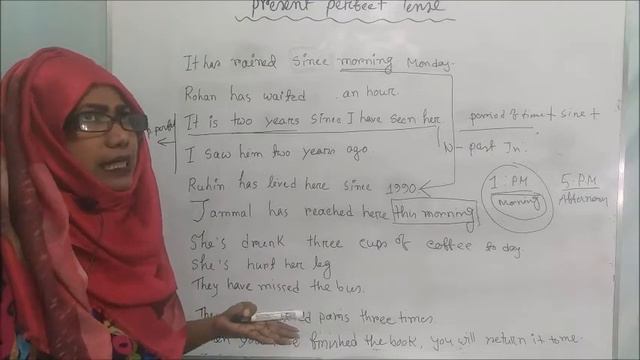 present perfect tense
It has rained since morning Monday.
Rohan has waited an hour.
It is two years since I have seen her.
I saw hem two years ago.
Rahin has lived here since 1990
Jammal has reached here this morning
She's drunk three cups of coffee to day.
She's hurt her leg
They have missed the bus.
paris three times.
finished the book, you will return it to me.
p. perfect
period of time + sine +
past In.
1:PM
Morning
5:PM
Afternoon